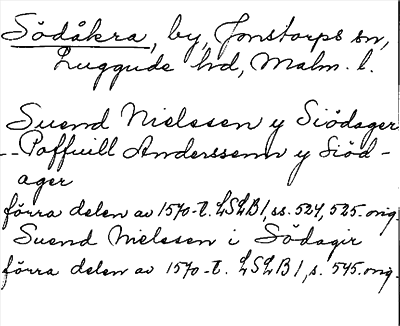 Södåkra, by, Jonstorps sn,
Luggude hd, Malm. l.
Suend Nielssen y Siödager
-- Poffuill Anderssenn y Siöd-
ager
förra delen av 1570-t. LSLB 1, ss. 524, 525. orig.
Suend Nielssen i Södagir
förra delen av 1570-t. LSLB 1, s. 545. orig.